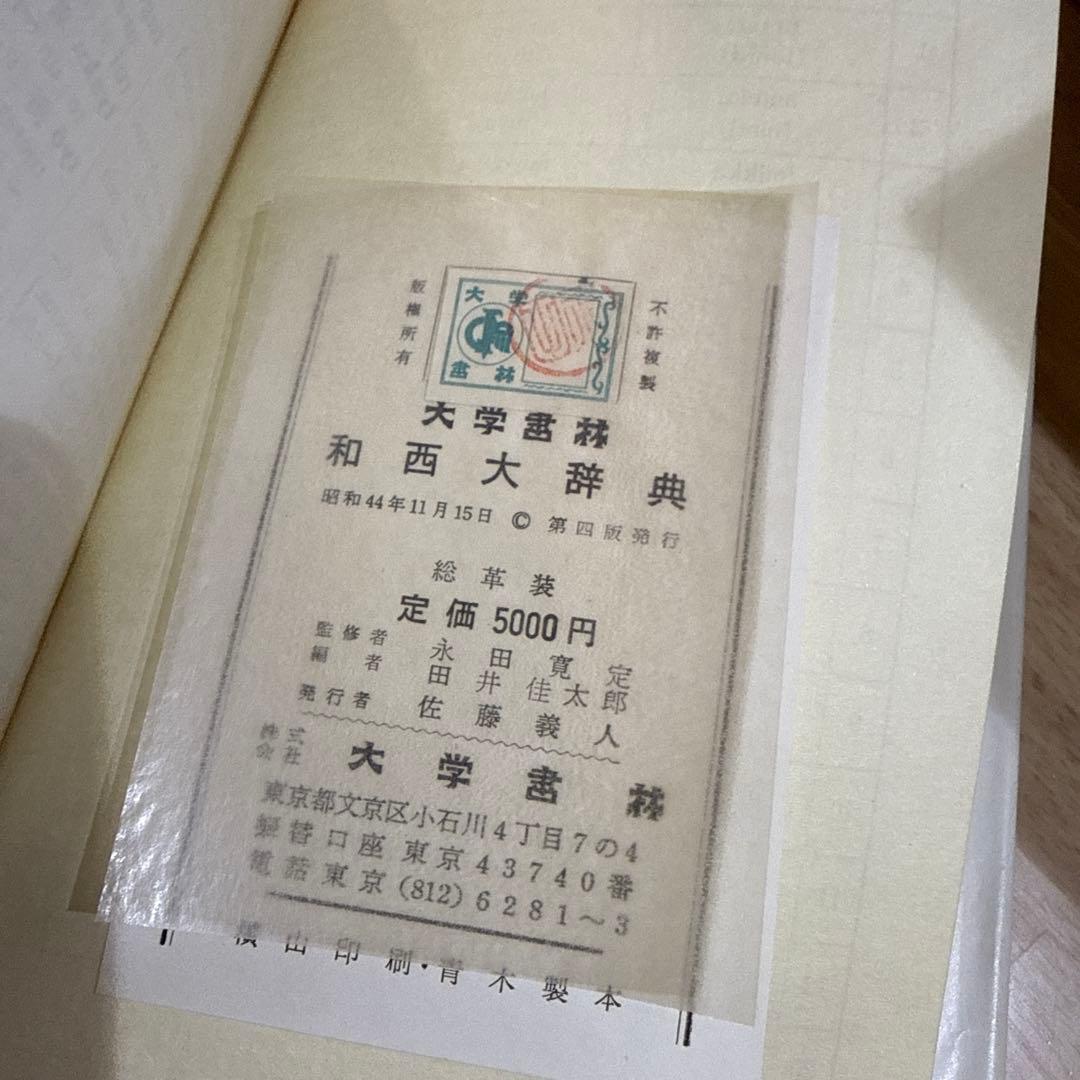 版権所有
不許複製
大学
書林
大学書林
和西大辞典
昭和44年11月15日 © 第四版発行
総革装
定価 5000円
監修者 永田寛定
編者 田井佳太郎
発行者 佐藤義人
株式会社 大学書林
東京都文京区小石川4丁目7の4
振替口座 東京 43740番
電話 東京 (812) 6281~3
横山印刷・青木製本